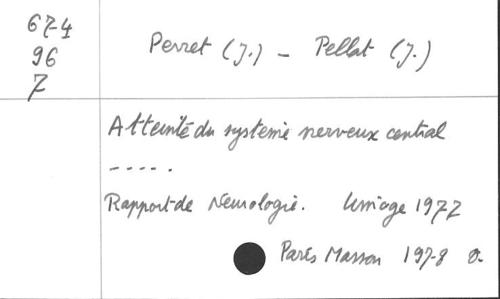 67-4
96
7
Perret (J.) - Pellat (J.)
Atteinté du systemè nerveux central
-----.
Rapport de Neurologie. 1977
Paris Masson 1978